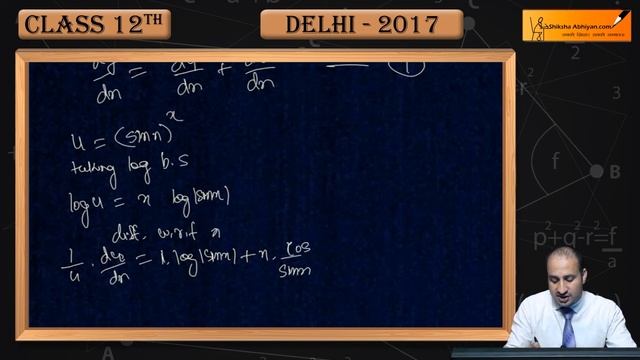 CLASS 12TH
DELHI - 2017
Shiksha Abhiyan.com
dy/dx = du/dx + dv/dx (1)
u = (sinx)^x
taking log b.s
log u = x log(sinx)
diff. w.r.t x
1/u . du/dx = 1. log(sinx) + x. cos/sinx
r²
3
f
B
p²+q²-r²=f/a
A